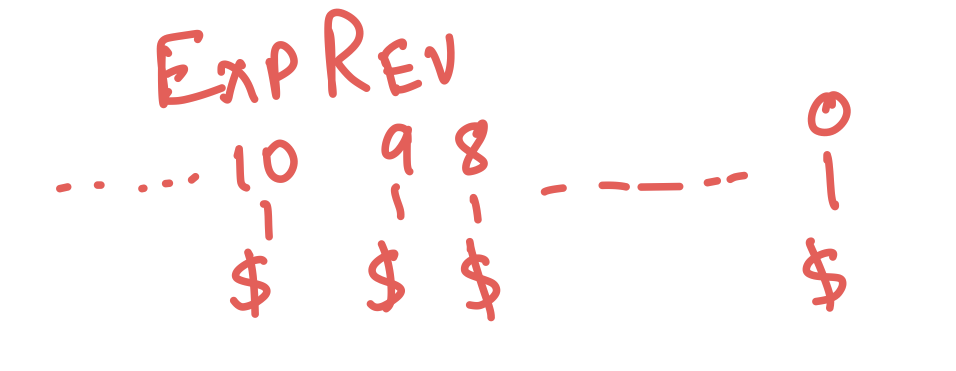 Exp Rev
..... 10 9 8 - - - - - 0
| | | |
$ $ $ $